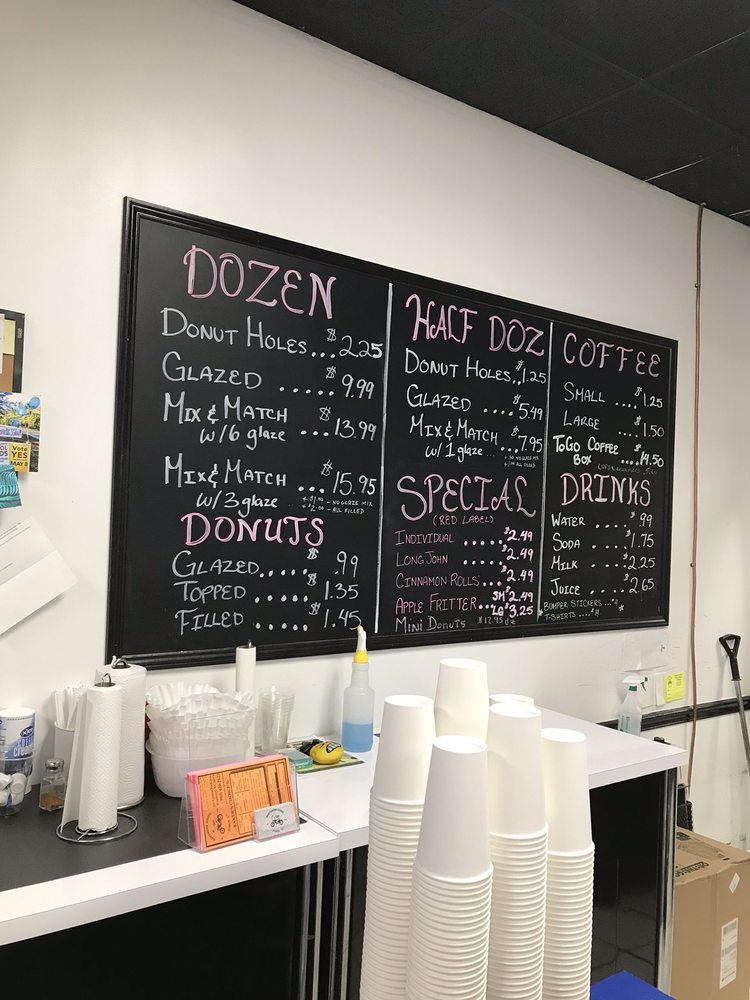 DOZEN
DONUT HOLES...$2.25
GLAZED .....$9.99
MIX & MATCH $
w/6 glaze ...13.99
MIX & MATCH $
w/3 glaze ...15.95
+ $1.00 - NO GLAZE MIX
+ $2.00 - ALL FILLED
DONUTS
GLAZED..... $.99
TOPPED ..... $1.35
FILLED ..... $1.45
HALF DOZ
DONUT HOLES..$1.25
GLAZED ....$5.49
MIX & MATCH ..$7.95
w/1 glaze
SPECIAL
(RED LABEL)
INDIVIDUAL ......$2.49
LONG JOHN ......$2.49
CINNAMON ROLLS...$2.49
APPLE FRITTER...SM $2.49
LG $3.25
MINI DONUTS $12.95 dz
COFFEE
SMALL ....$1.25
LARGE ....$1.50
TOGO COFFEE
BOX ....$14.50
DRINKS
WATER .....$.99
SODA .....$1.75
MILK .....$2.25
JUICE .....$2.65
*BUMPER STICKERS
T-SHIRTS
Vote
YES
MAY 8